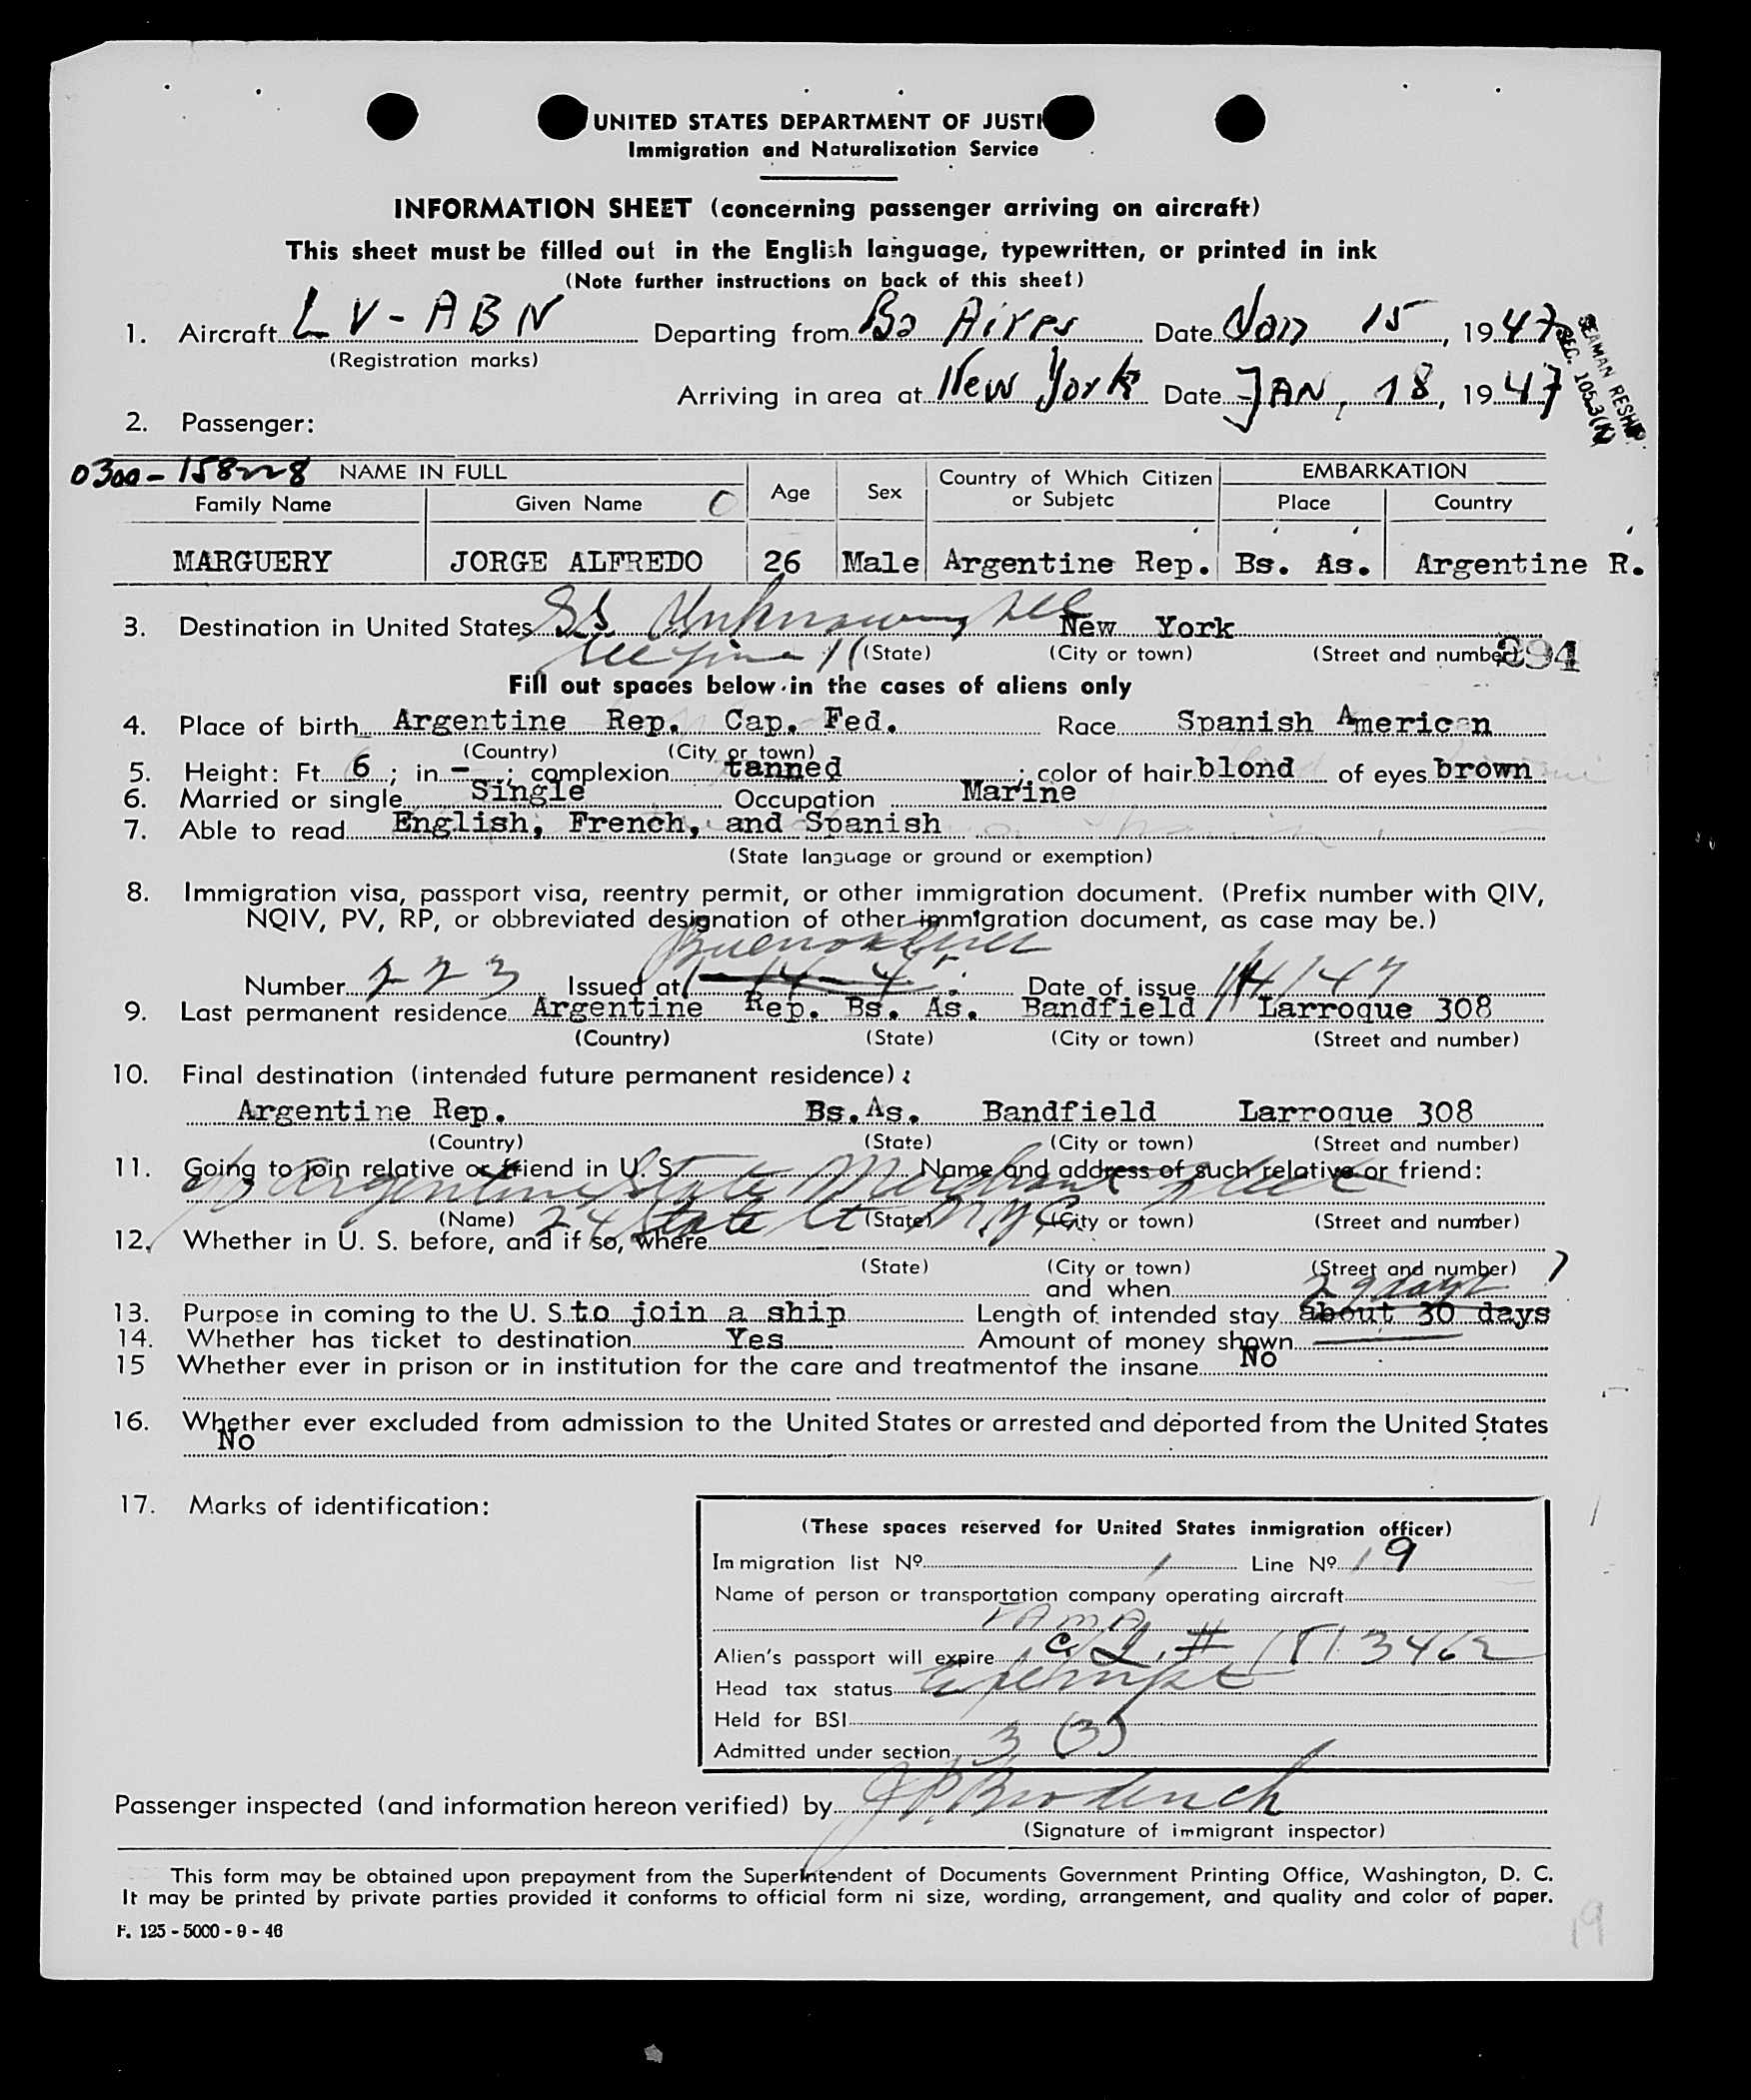 UNITED STATES DEPARTMENT OF JUSTI
Immigration and Naturalization Service
INFORMATION SHEET (concerning passenger arriving on aircraft)
This sheet must be filled out in the English language, typewritten, or printed in ink
(Note further instructions on back of this sheet)
1. Aircraft LV-ABN Departing from Bs Aires Date Jan 15, 1947
(Registration marks)
SEAMAN RESHIP
SEC. 105.3(K)
Arriving in area at New York Date JAN, 18, 1947
2. Passenger:
0300-158228 NAME IN FULL Age Sex Country of Which Citizen or Subjetc EMBARKATION
Family Name Given Name Place Country
MARGUERY JORGE ALFREDO 26 Male Argentine Rep. Bs. As. Argentine R.
3. Destination in United States SS. Unknown New York
(State) (City or town) (Street and number) 394
Fill out spaces below in the cases of aliens only
4. Place of birth Argentine Rep. Cap. Fed. Race Spanish American
(Country) (City or town)
5. Height: Ft. 6 ; in. - ; complexion tanned ; color of hair blond of eyes brown
6. Married or single Single Occupation Marine
7. Able to read English, French, and Spanish
(State language or ground or exemption)
8. Immigration visa, passport visa, reentry permit, or other immigration document. (Prefix number with QIV,
NQIV, PV, RP, or obbreviated designation of other immigration document, as case may be.)
Buenos Aires
Number 223 Issued at Date of issue 1/14/47
9. Last permanent residence Argentine Rep. Bs. As. Bandfield Larroque 308
(Country) (State) (City or town) (Street and number)
10. Final destination (intended future permanent residence):
Argentine Rep. Bs.As. Bandfield Larroque 308
(Country) (State) (City or town) (Street and number)
11. Going to join relative or friend in U. S. Name and address of such relative or friend:
Argentine State Merchant Fleet
(Name) (State) (City or town) (Street and number)
24 State St N.Y.C.
12. Whether in U. S. before, and if so, where
(State) (City or town) (Street and number)
and when
29 days
13. Purpose in coming to the U. S. to join a ship Length of intended stay about 30 days
14. Whether has ticket to destination Yes Amount of money shown
15 Whether ever in prison or in institution for the care and treatmentof the insane No
16. Whether ever excluded from admission to the United States or arrested and deported from the United States
No
17. Marks of identification:
(These spaces reserved for United States inmigration officer)
Immigration list Nº 1 Line Nº 19
Name of person or transportation company operating aircraft
FAMA
Alien's passport will expire C.I. # 1813462
Head tax status exempt
Held for BSI
Admitted under section 3 (5)
Passenger inspected (and information hereon verified) by
(Signature of immigrant inspector)
This form may be obtained upon prepayment from the Superintendent of Documents Government Printing Office, Washington, D. C.
It may be printed by private parties provided it conforms to official form ni size, wording, arrangement, and quality and color of paper.
F. 125 - 5000 - 9 - 46
19